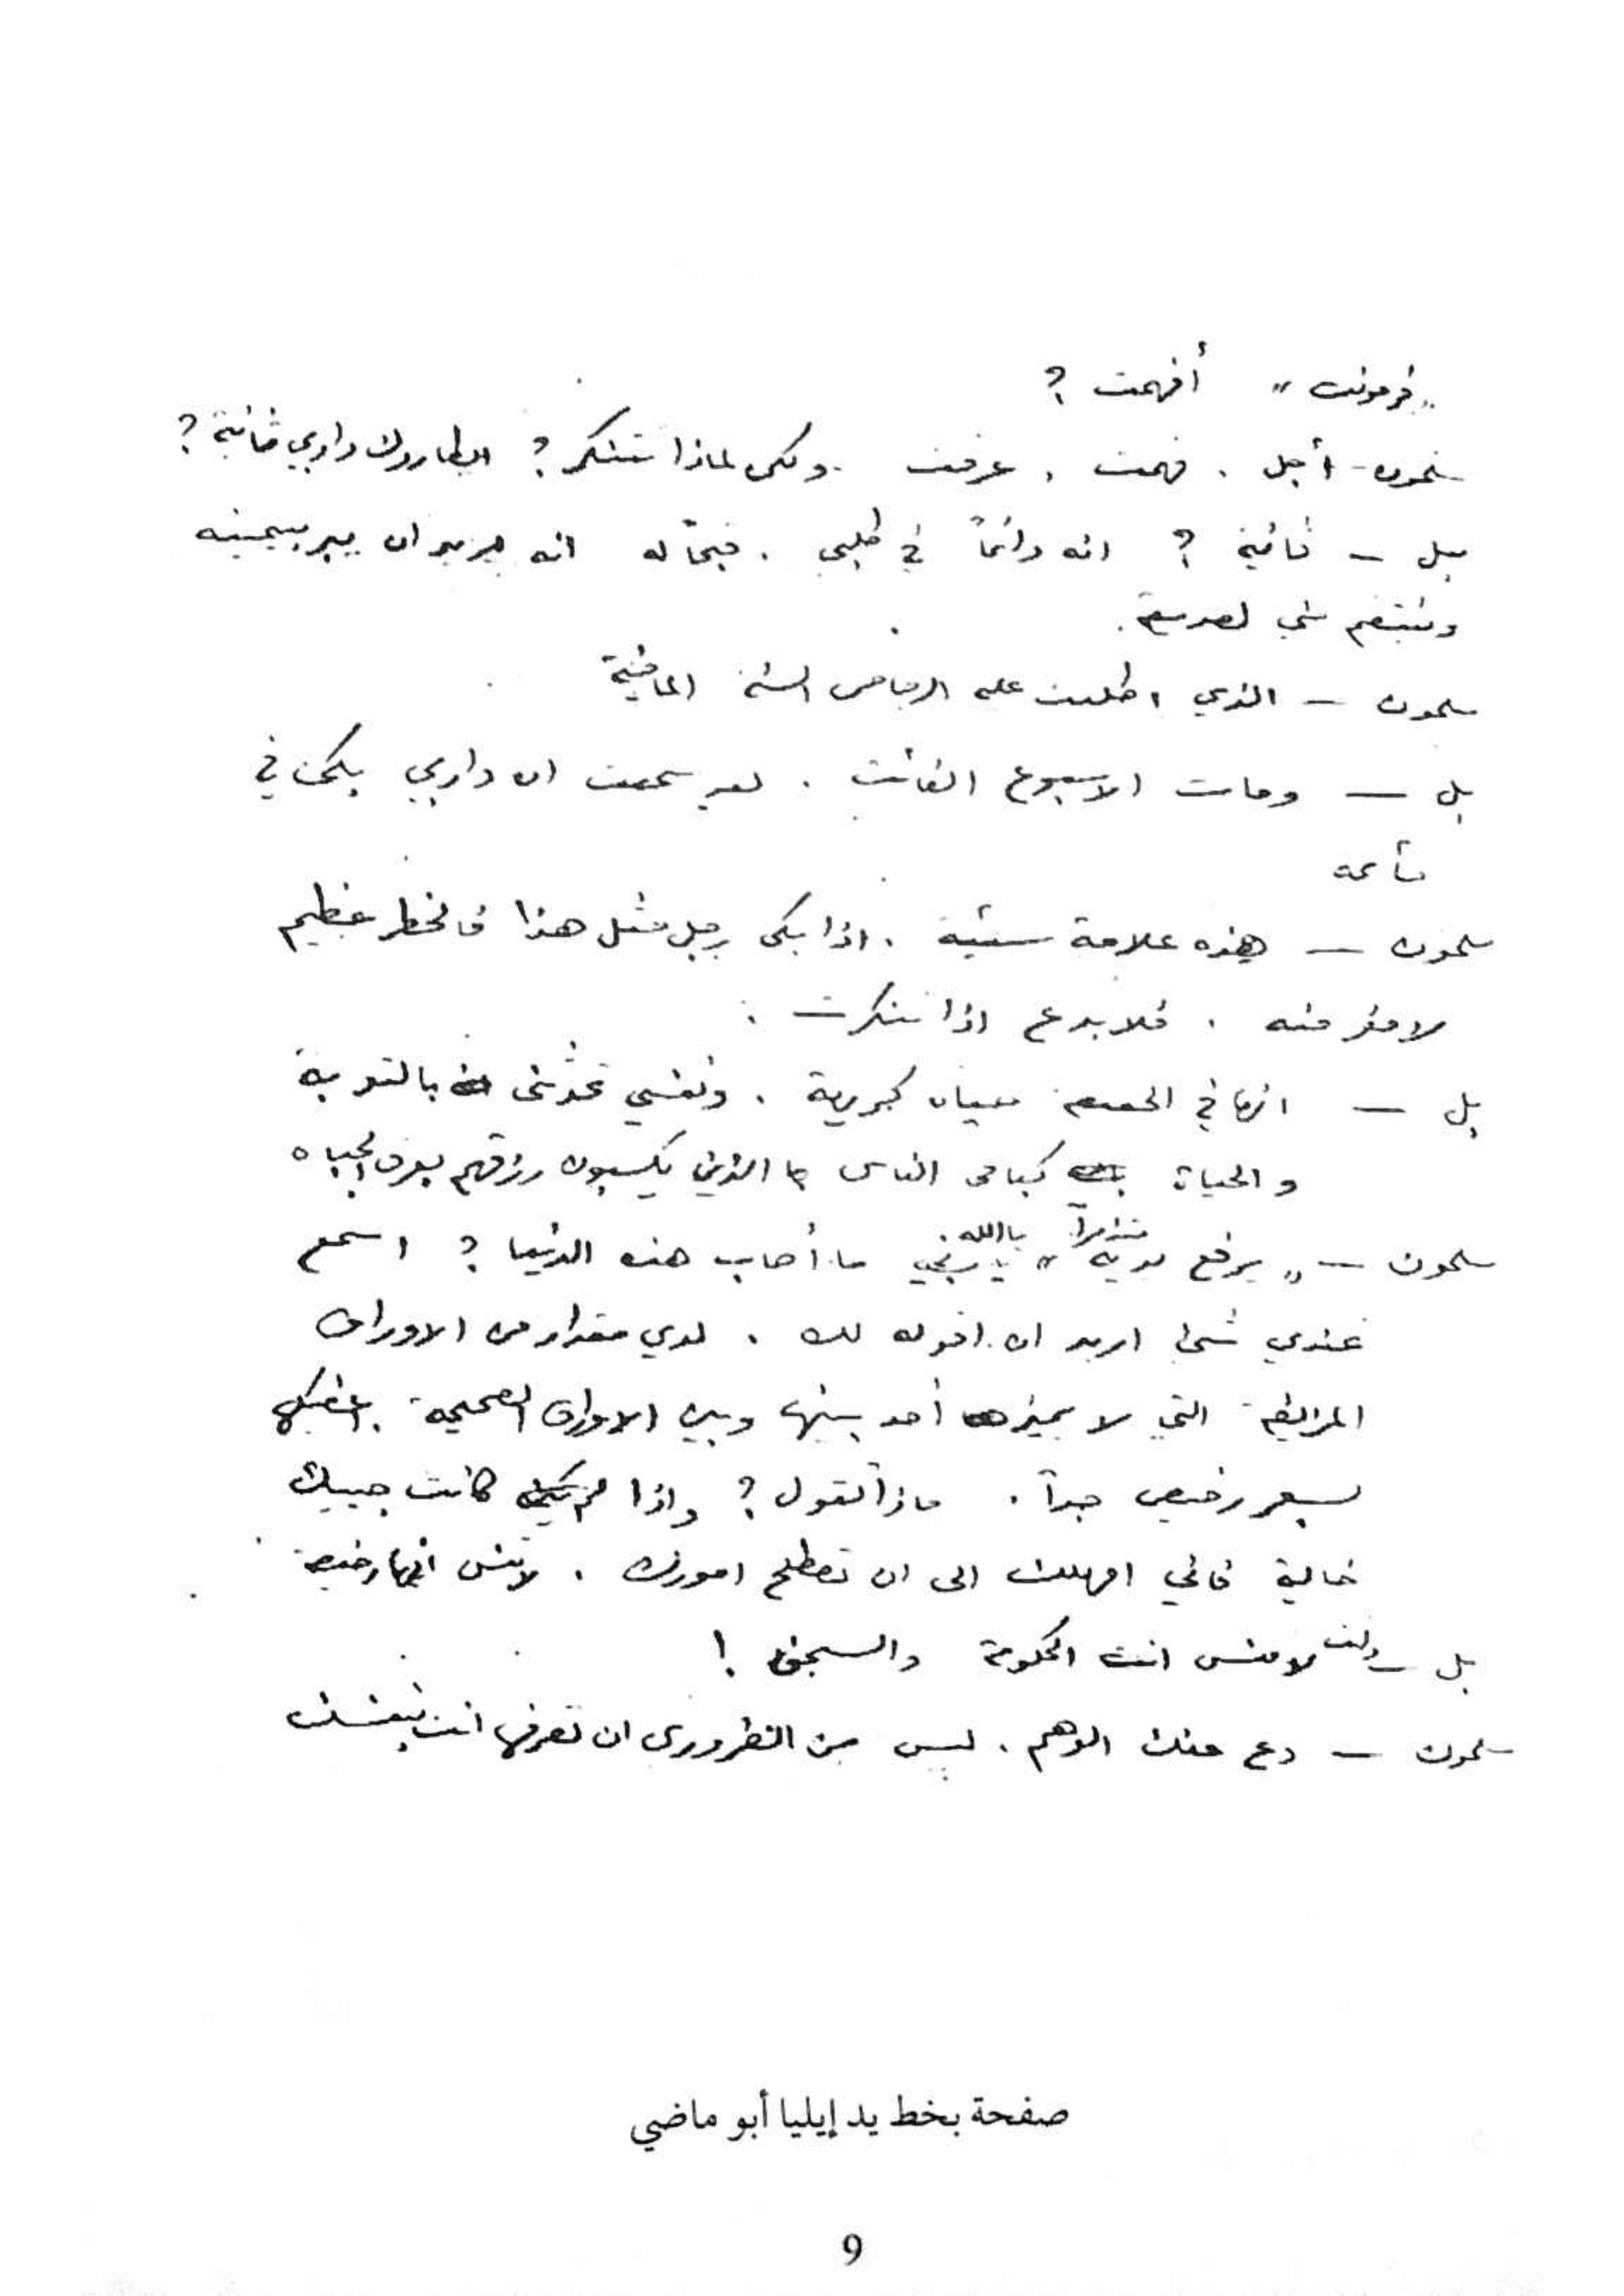 „فرمونت" أفهمت ؟
سلمون - أجل . فهمت . عرفت . ولكن لماذا تتنكر ؟ داربي ثانية ؟
بل — ثانية ؟ انه دائماً في طلبي . انه يريد ان يبر بيمينه
وينتقم مني
سلمون — الذي اطلقت عليه الرصاص السنة الماضية
بل — ومات الاسبوع الفائت . لقد سمعت ان داربي بكى في
مأتمه
سلمون — هذه علامة سيئة . اذا بكى رجل مثل هذا فالخطر عظيم
لا مفر منه . فلا بدع اذا تنكرت .
بل — انها في الحقيقة كريهة . ونفسي تحدثني بالتوبة
والحياة كباقي الناس الذين يكسبون رزقهم بعرق الجباه
سلمون — „ يرفع يديه " يا الله ما أصاب هذه الدنيا ؟ اسمع
عندي شيء اريد ان اقوله لك . لدي مقدار من الاوراق
المزيفة التي لا يميز أحد بينها وبين الاوراق الصحيحة .
بسعر رخيص جداً . ماذا تقول ؟ واذا كانت جيبك
خالية فاني امهلك الى ان تصطلح امورك . لا تنس انها رخيصة
بل — لا تنس انت الحكومة والسجن !
سلمون — دع عنك الوهم . ليس من الضروري ان تصرفها انت بنفسك
صفحة بخط يد إيليا أبو ماضي
9